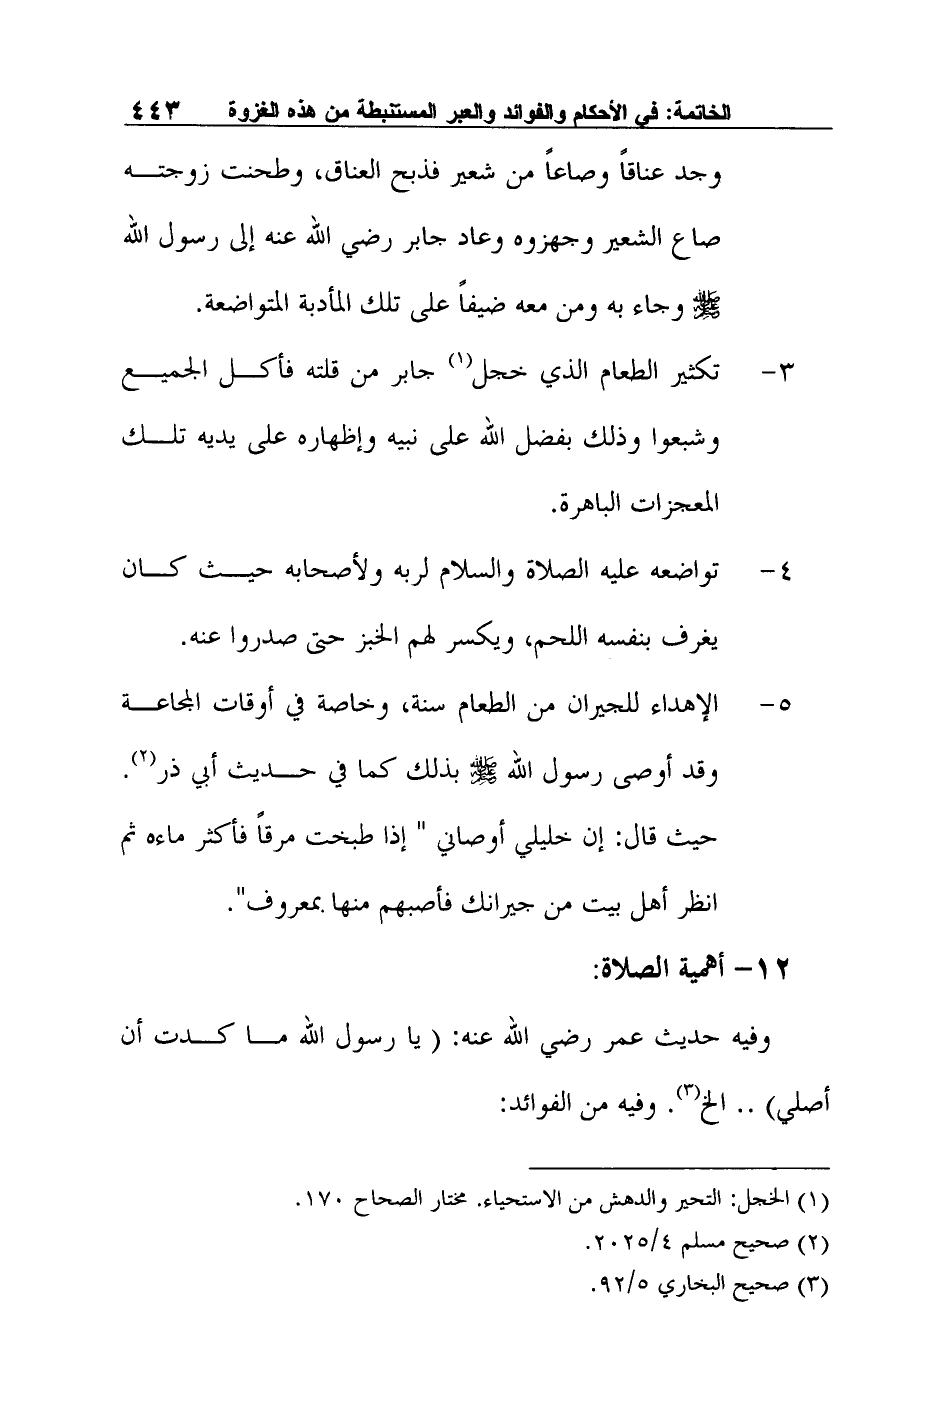 الخاتمة: في الأحكام والفوائد والعبر المستنبطة من هذه الغزوة ٤٤٣
وجد عناقاً وصاعاً من شعير فذبح العناق، وطحنت زوجتـــه
صاع الشعير وجهزوه وعاد جابر رضي الله عنه إلى رسول الله
ﷺ وجاء به ومن معه ضيفاً على تلك المأدبة المتواضعة.
٣- تكثير الطعام الذي خجل(١) جابر من قلته فأكـــل الجميـــع
وشبعوا وذلك بفضل الله على نبيه وإظهاره على يديه تلـــك
المعجزات الباهرة.
٤- تواضعه عليه الصلاة والسلام لربه ولأصحابه حيـــث كـــان
يغرف بنفسه اللحم، ويكسر لهم الخبز حتى صدروا عنه.
٥- الإهداء للجيران من الطعام سنة، وخاصة في أوقات المجاعـــة
وقد أوصى رسول الله ﷺ بذلك كما في حـــديث أبي ذر(٢).
حيث قال: إن خليلي أوصاني " إذا طبخت مرقاً فأكثر ماءه ثم
انظر أهل بيت من جيرانك فأصبهم منها بمعروف".
١٢- أهمية الصلاة:
وفيه حديث عمر رضي الله عنه: ( يا رسول الله مـــا كـــدت أن
أصلي) .. الخ(٣). وفيه من الفوائد:
(١) الخجل: التحير والدهش من الاستحياء. مختار الصحاح ١٧٠.
(٢) صحيح مسلم ٢٠٢٥/٤.
(٣) صحيح البخاري ٩٢/٥.